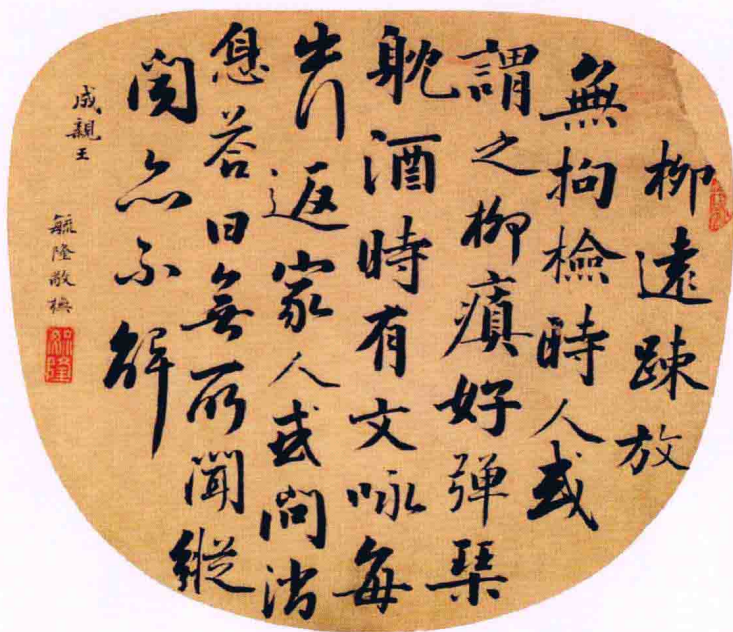 柳遠踈放
無拘檢時人或
謂之柳瘨好彈琴
躭酒時有文咏每
出行返家人或問消
息荅曰無所聞縱
聞亦不解
成親王
毓隆敬橅
毓隆